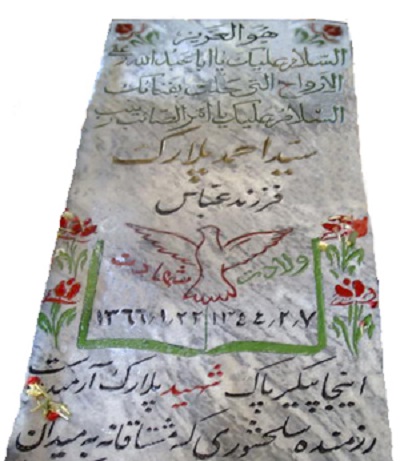 هو العزیز
السلام علیک یا ابا عبدالله و علی
الارواح التی حلت بفنائک
السلام علیک یا ام المصائب زینب
سید احمد پلارک
فرزند عباس
ولادت شهادت
۱۳۴۴٫۲٫۷ ۱۳۶۶٫۱٫۲۲
اینجا پیکر پاک شهید پلارک آرمیده است
رزمنده سلحشوری که مشتاقانه به میدان